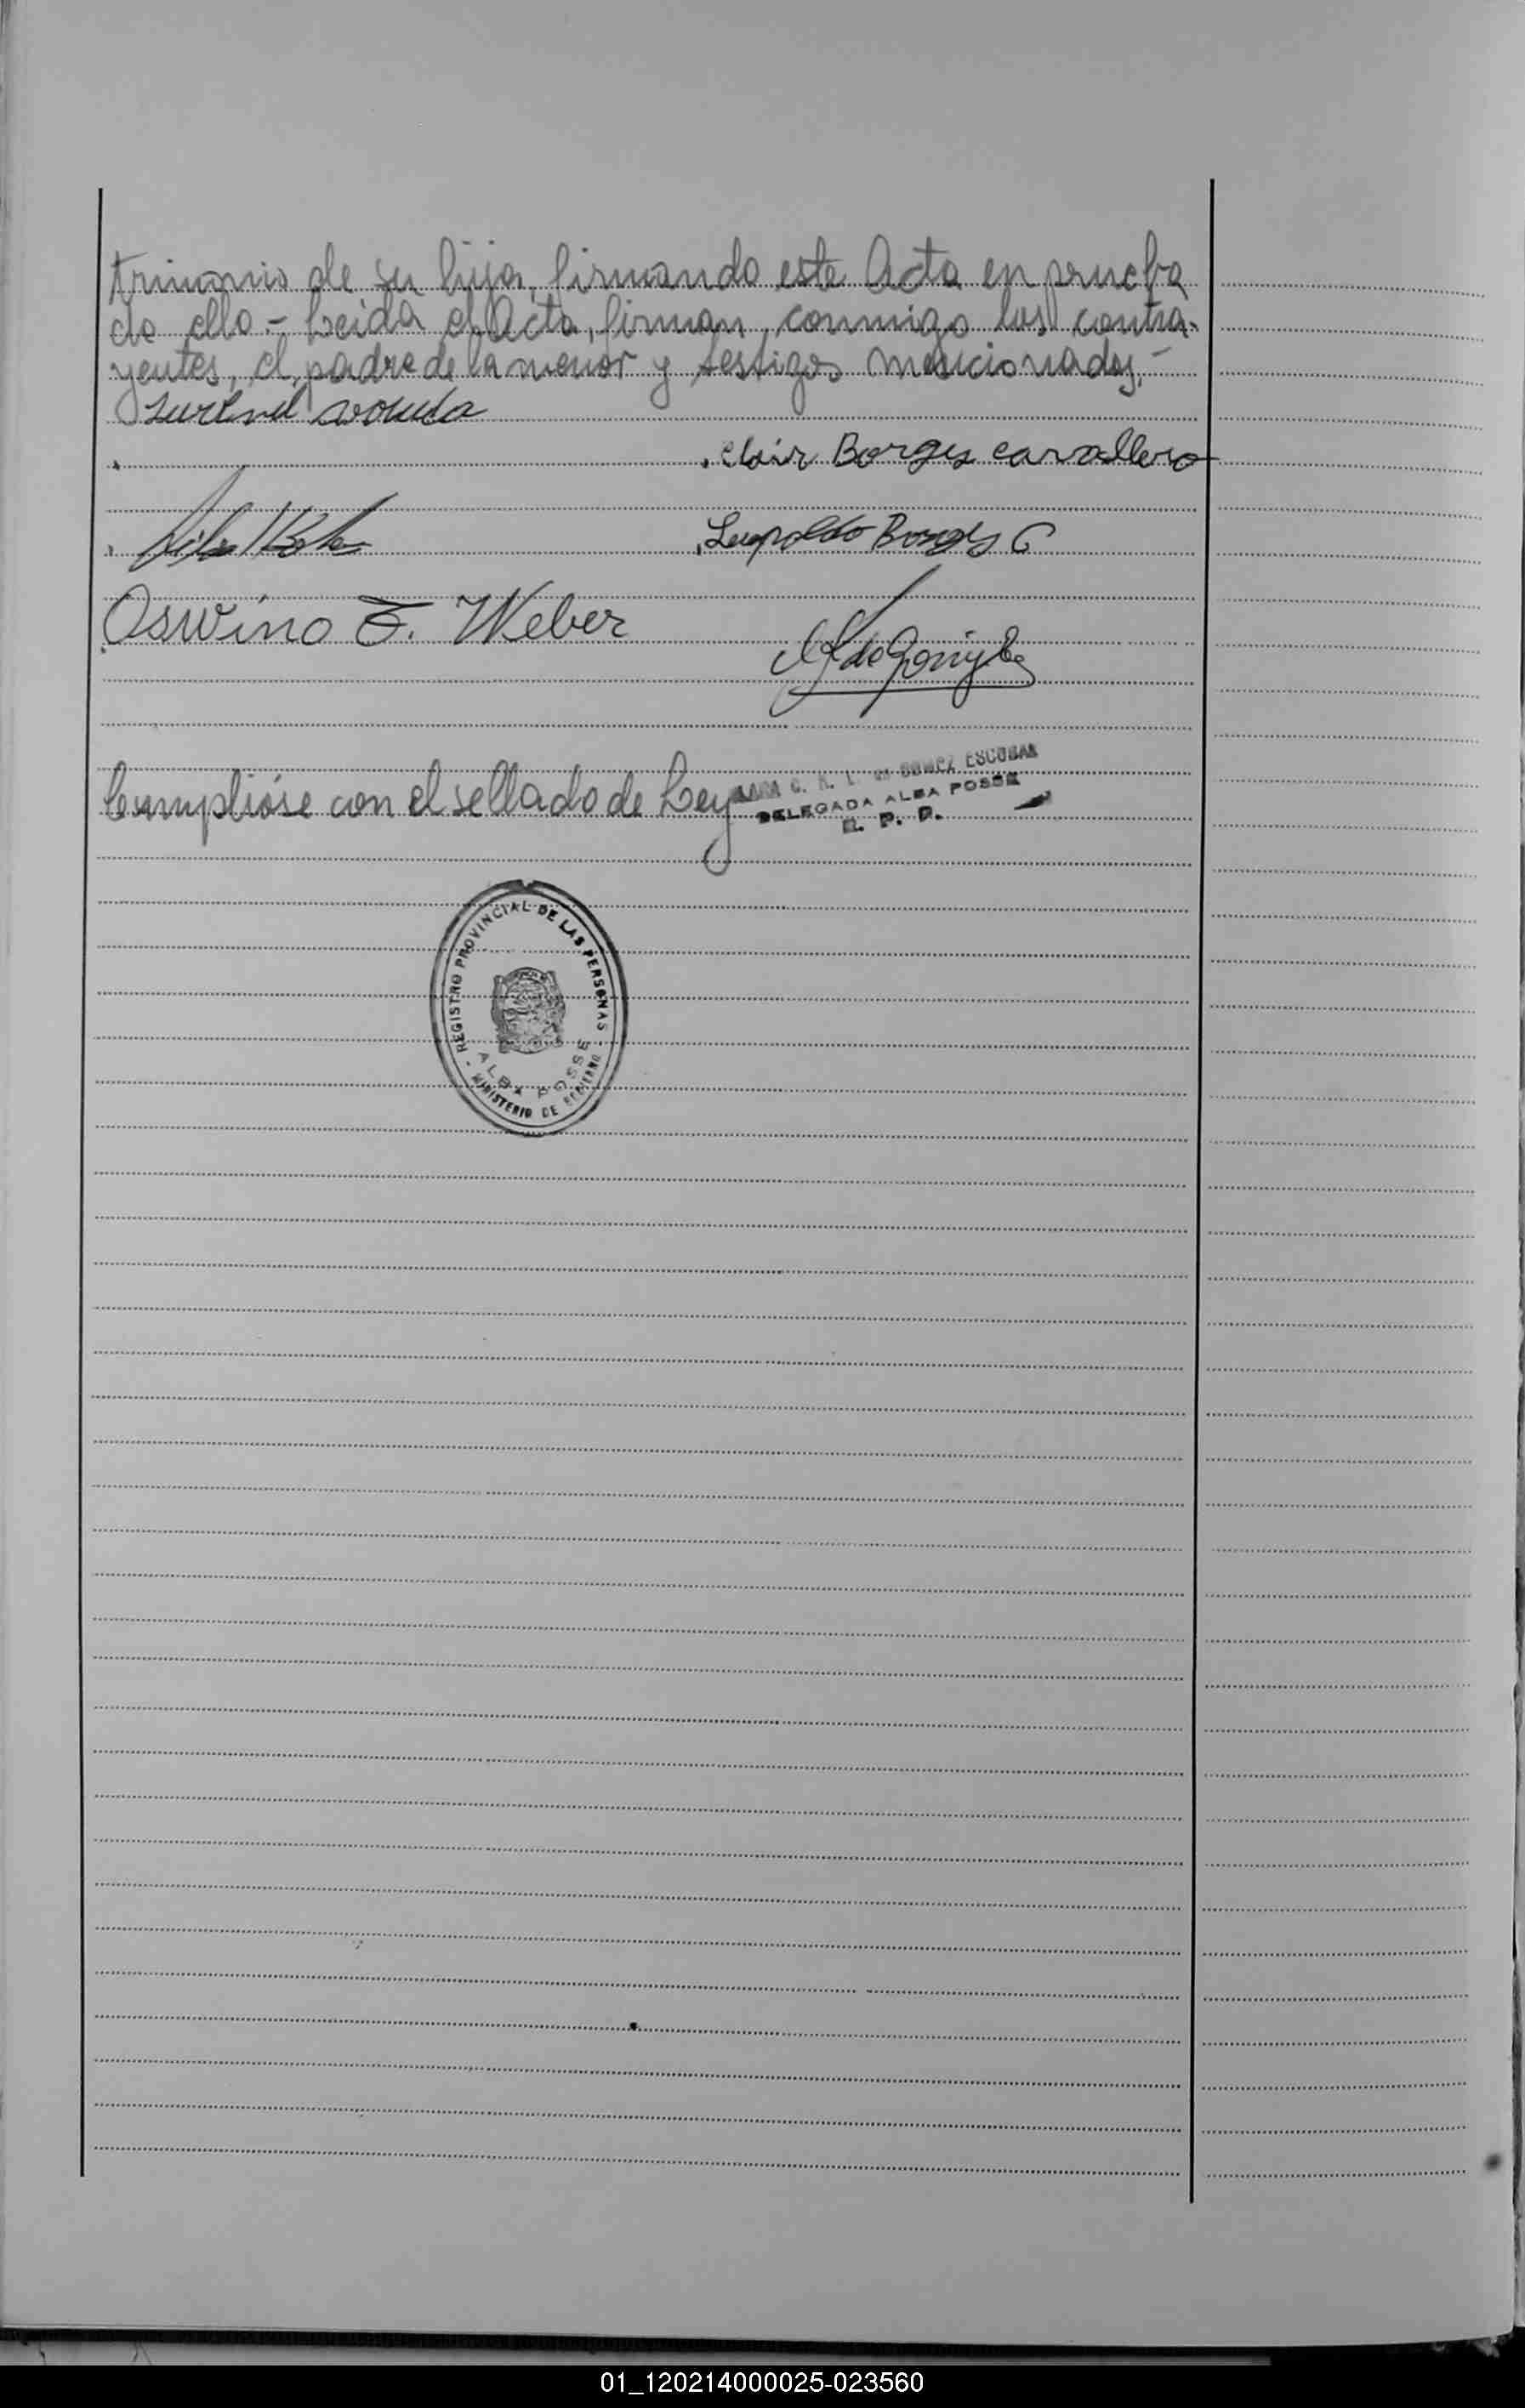 trimonio de su hija, firmando este Acta en prueba
de ello.- Leida el Acta, firman, conmigo los contra-
yentes, el padre de la menor y testigos mencionados.-
Clair Borges carvallero
Leopoldo Borges C
Oswino F. Weber
Cumplióse con el sellado de Ley
GOMEZ ESCOBAR
DELEGADA ALBA POSSE
R. P. P.
REGISTRO PROVINCIAL DE LAS PERSONAS
ALBA POSSE
MINISTERIO DE GOBIERNO
01_120214000025-023560